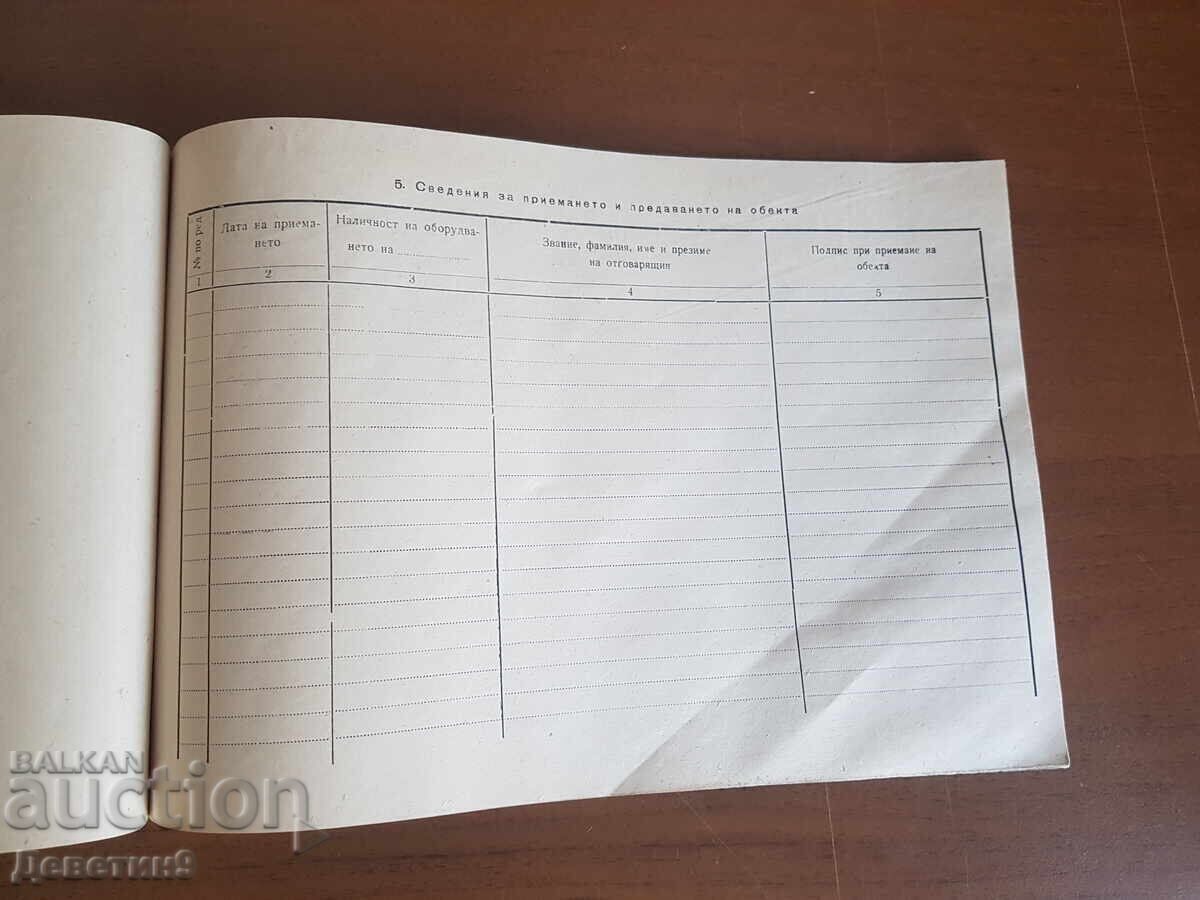 5. Сведения за приемането и предаването на обекта
№ по ред
Дата на приема-
нето
Наличност на оборудва-
нето на
Звание, фамилия, име и презиме
на отговарящия
Подпис при приемане на
обекта
1
2
3
4
5
BALKAN
auction
Деветин9